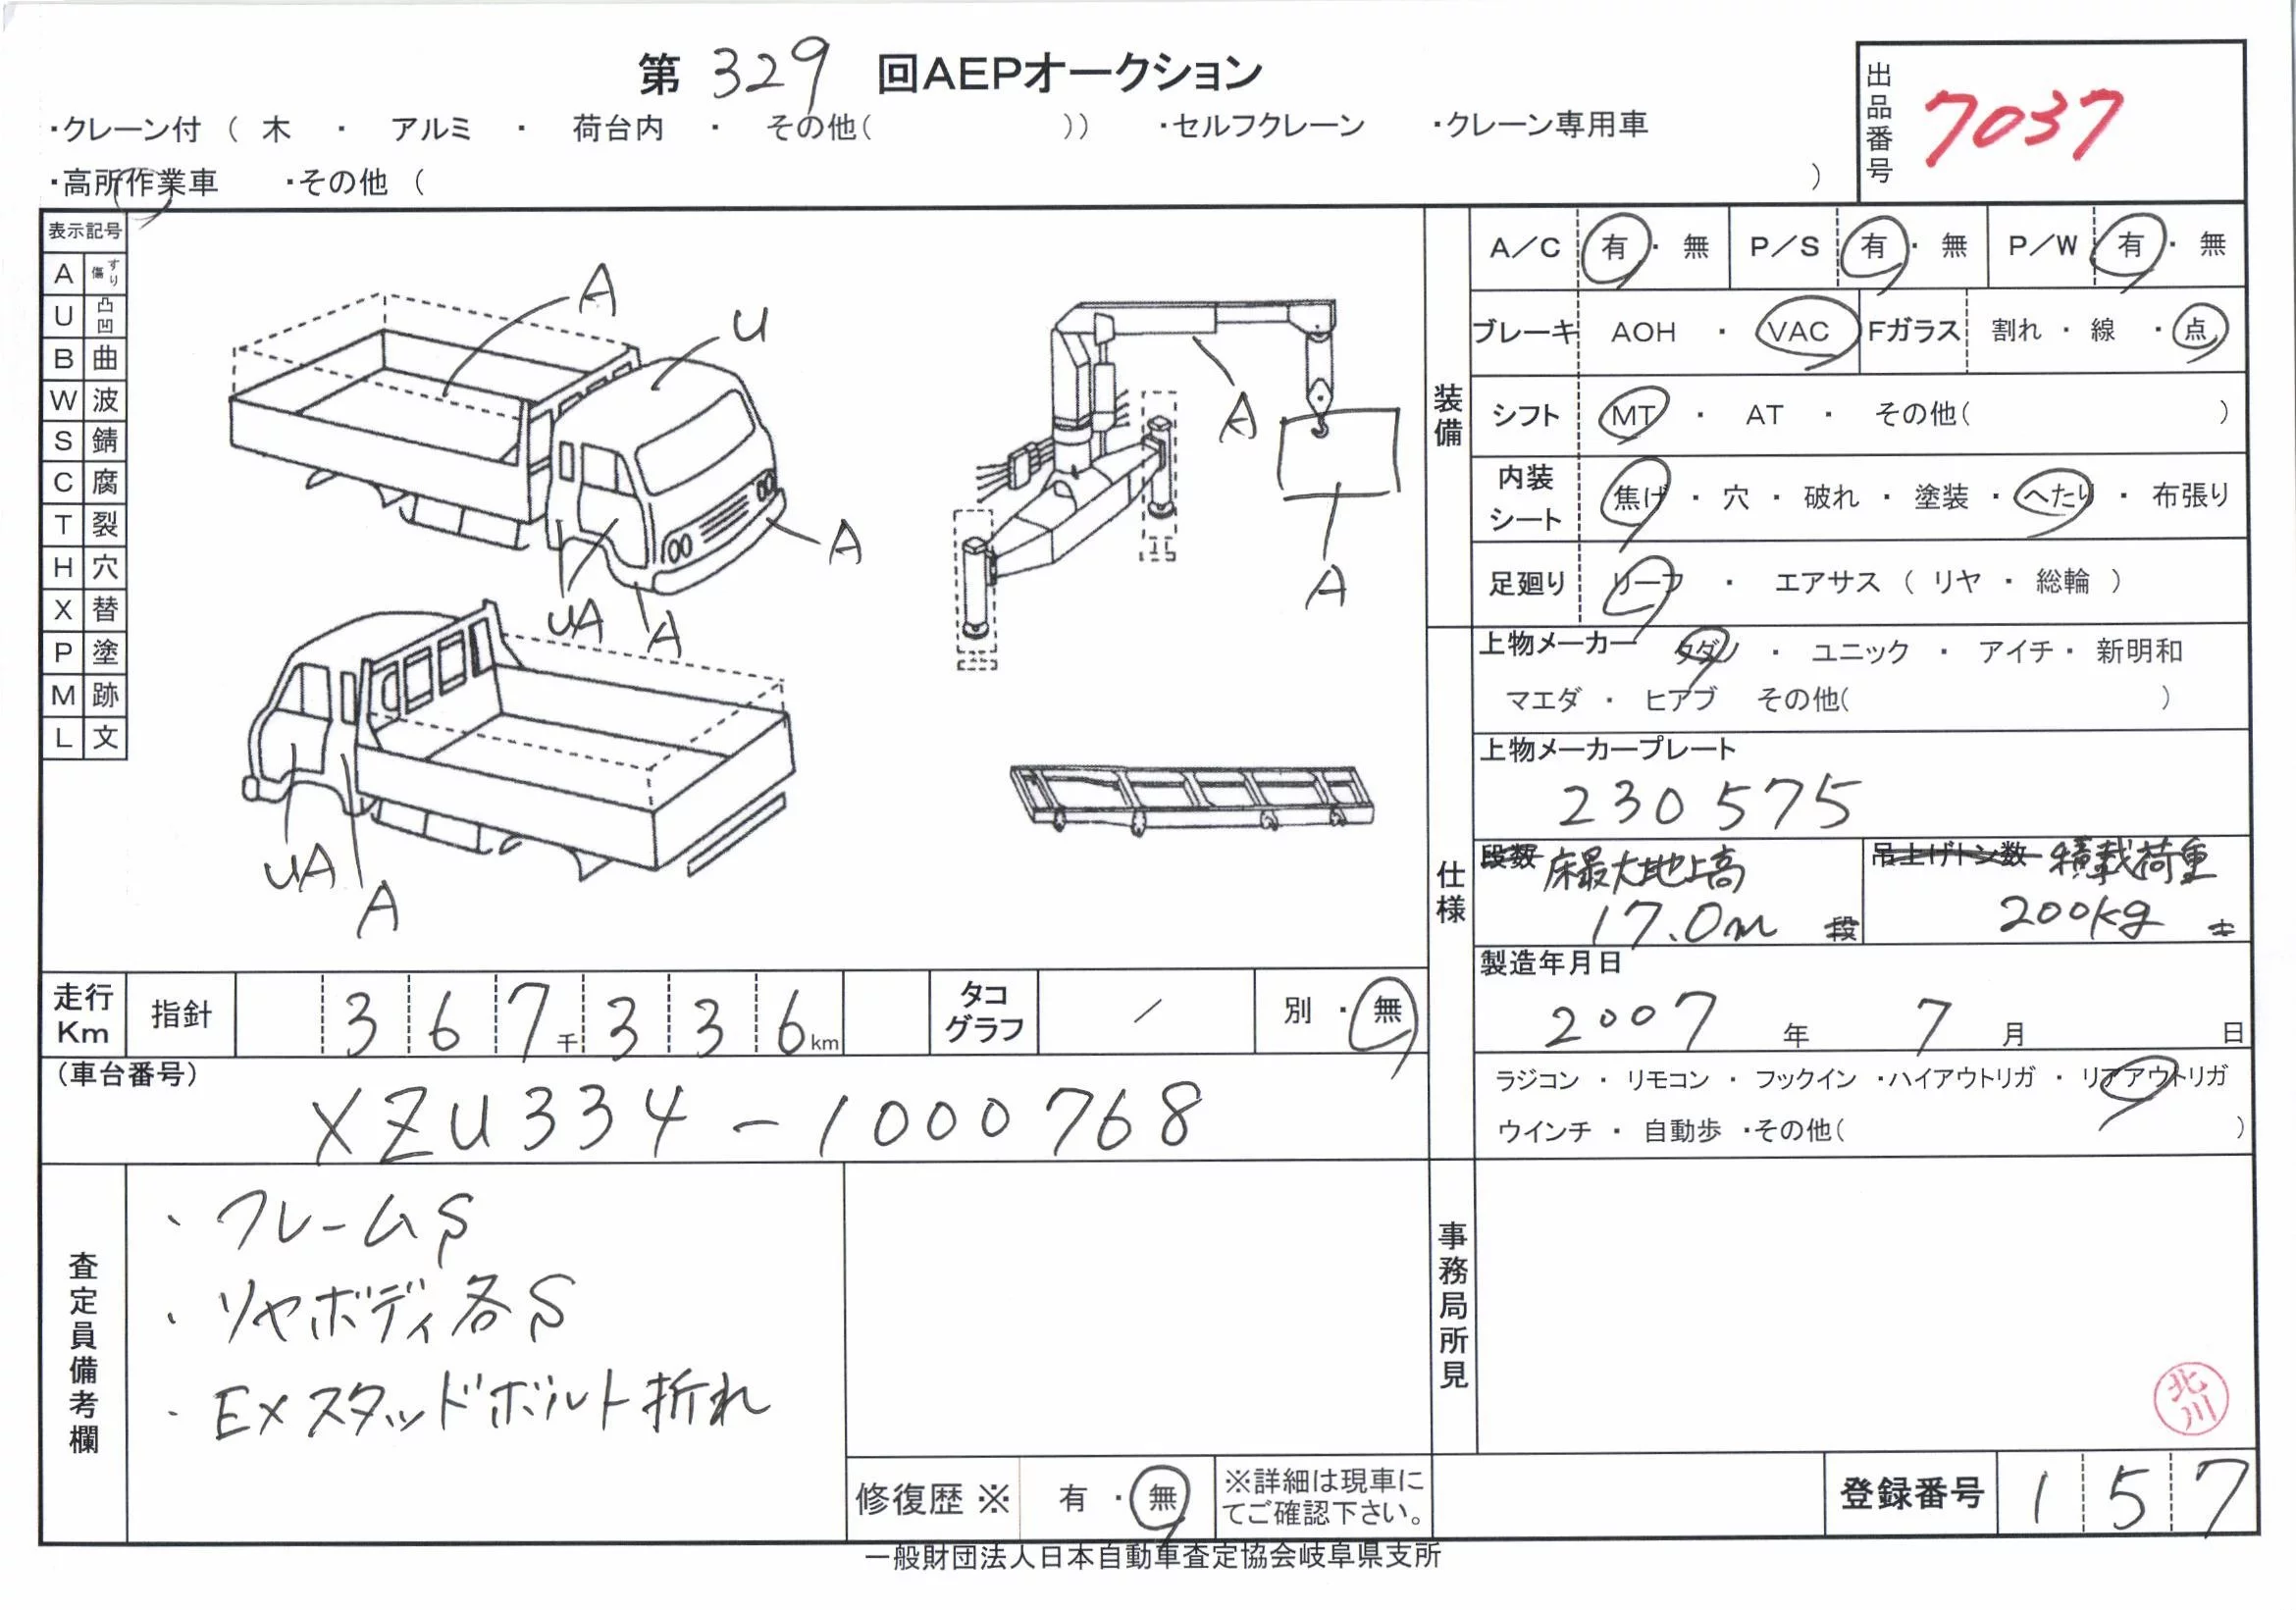 第 329 回AEPオークション
・クレーン付 ( 木 ・ アルミ ・ 荷台内 ・ その他( )) ・セルフクレーン ・クレーン専用車
・高所作業車 ・その他 ( )
出品番号 7037
表示記号
A すり傷
U 凸凹
B 曲
W 波
S 錆
C 腐
T 裂
H 穴
X 替
P 塗
M 跡
L 文
A
U
A
UA
A
A
A
UA
A
装備
A/C 有 ・ 無 P/S 有 ・ 無 P/W 有 ・ 無
ブレーキ AOH ・ VAC Fガラス 割れ ・ 線 ・ 点
シフト MT ・ AT ・ その他( )
内装シート 焦げ ・ 穴 ・ 破れ ・ 塗装 ・ へたり ・ 布張り
足廻り リーフ ・ エアサス ( リヤ ・ 総輪 )
仕様
上物メーカー タダノ ・ ユニック ・ アイチ ・ 新明和
マエダ ・ ヒアブ その他( )
上物メーカープレート
230575
段数 床最大地上高 吊上げトン数 積載荷重
17.0m 段 200kg
製造年月日
2007 年 7 月 日
ラジコン ・ リモコン ・ フックイン ・ハイアウトリガ ・ リアアウトリガ
ウインチ ・ 自動歩 ・その他( )
走行Km 指針 367千336km タコグラフ / 別 ・ 無
(車台番号)
XZU334-1000768
査定員備考欄
・フレームS
・リヤボディ各S
・EXスタッドボルト折れ
事務局所見
北川
修復歴 ※ 有 ・ 無 ※詳細は現車にてご確認下さい。
登録番号 157
一般財団法人日本自動車査定協会岐阜県支所